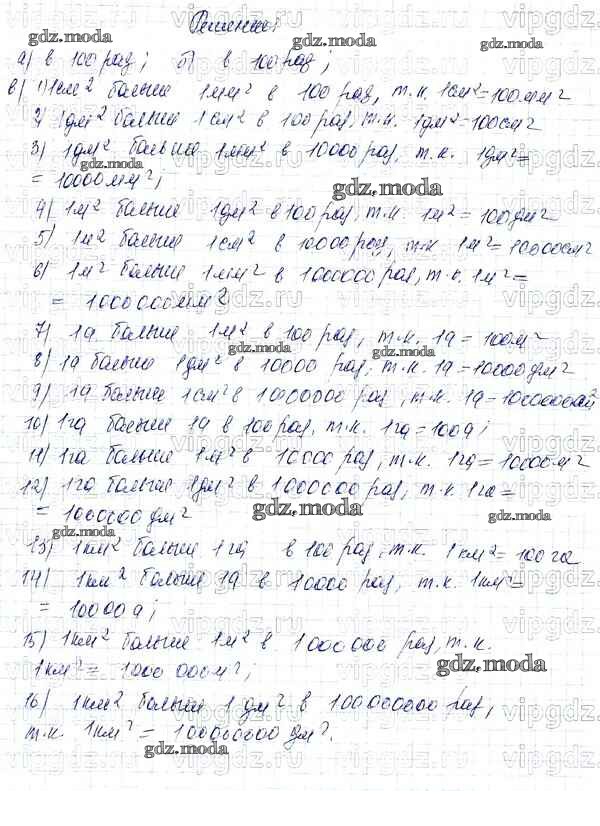 Решение:
а) в 100 раз; б) в 100 раз;
в) 1) 1см² больше 1мм² в 100 раз, т.к. 1см²=100мм²
2) 1дм² больше 1см² в 100 раз, т.к. 1дм²=100см²
3) 1дм² больше 1мм² в 10000 раз, т.к. 1дм²=
= 10000мм²;
4) 1м² больше 1дм² в 100 раз, т.к. 1м²=100дм²
5) 1м² больше 1см² в 10000 раз, т.к. 1м²=10000см²
6) 1м² больше 1мм² в 1000000 раз, т.к. 1м²=
= 1000000мм²
7) 1а больше 1м² в 100 раз, т.к. 1а=100м²
8) 1а больше 1дм² в 10000 раз, т.к. 1а=10000дм²
9) 1а больше 1см² в 1000000 раз, т.к. 1а=
10) 1га больше 1а в 100 раз, т.к. 1га=100а;
11) 1га больше 1м² в 10000 раз, т.к. 1га=10000м²
12) 1га больше 1дм² в 1000000 раз, т.к. 1га=
= 1000000дм²
13) 1км² больше 1га в 100 раз, т.к. 1км²=100га
14) 1км² больше 1а в 10000 раз, т.к. 1км²=
= 10000а;
15) 1км² больше 1м² в 1000000 раз, т.к.
1км²= 1000 000м²;
16) 1км² больше 1дм² в 100000000 раз,
т.к. 1км²= 100000000дм².
gdz.moda
vipgdz.ru